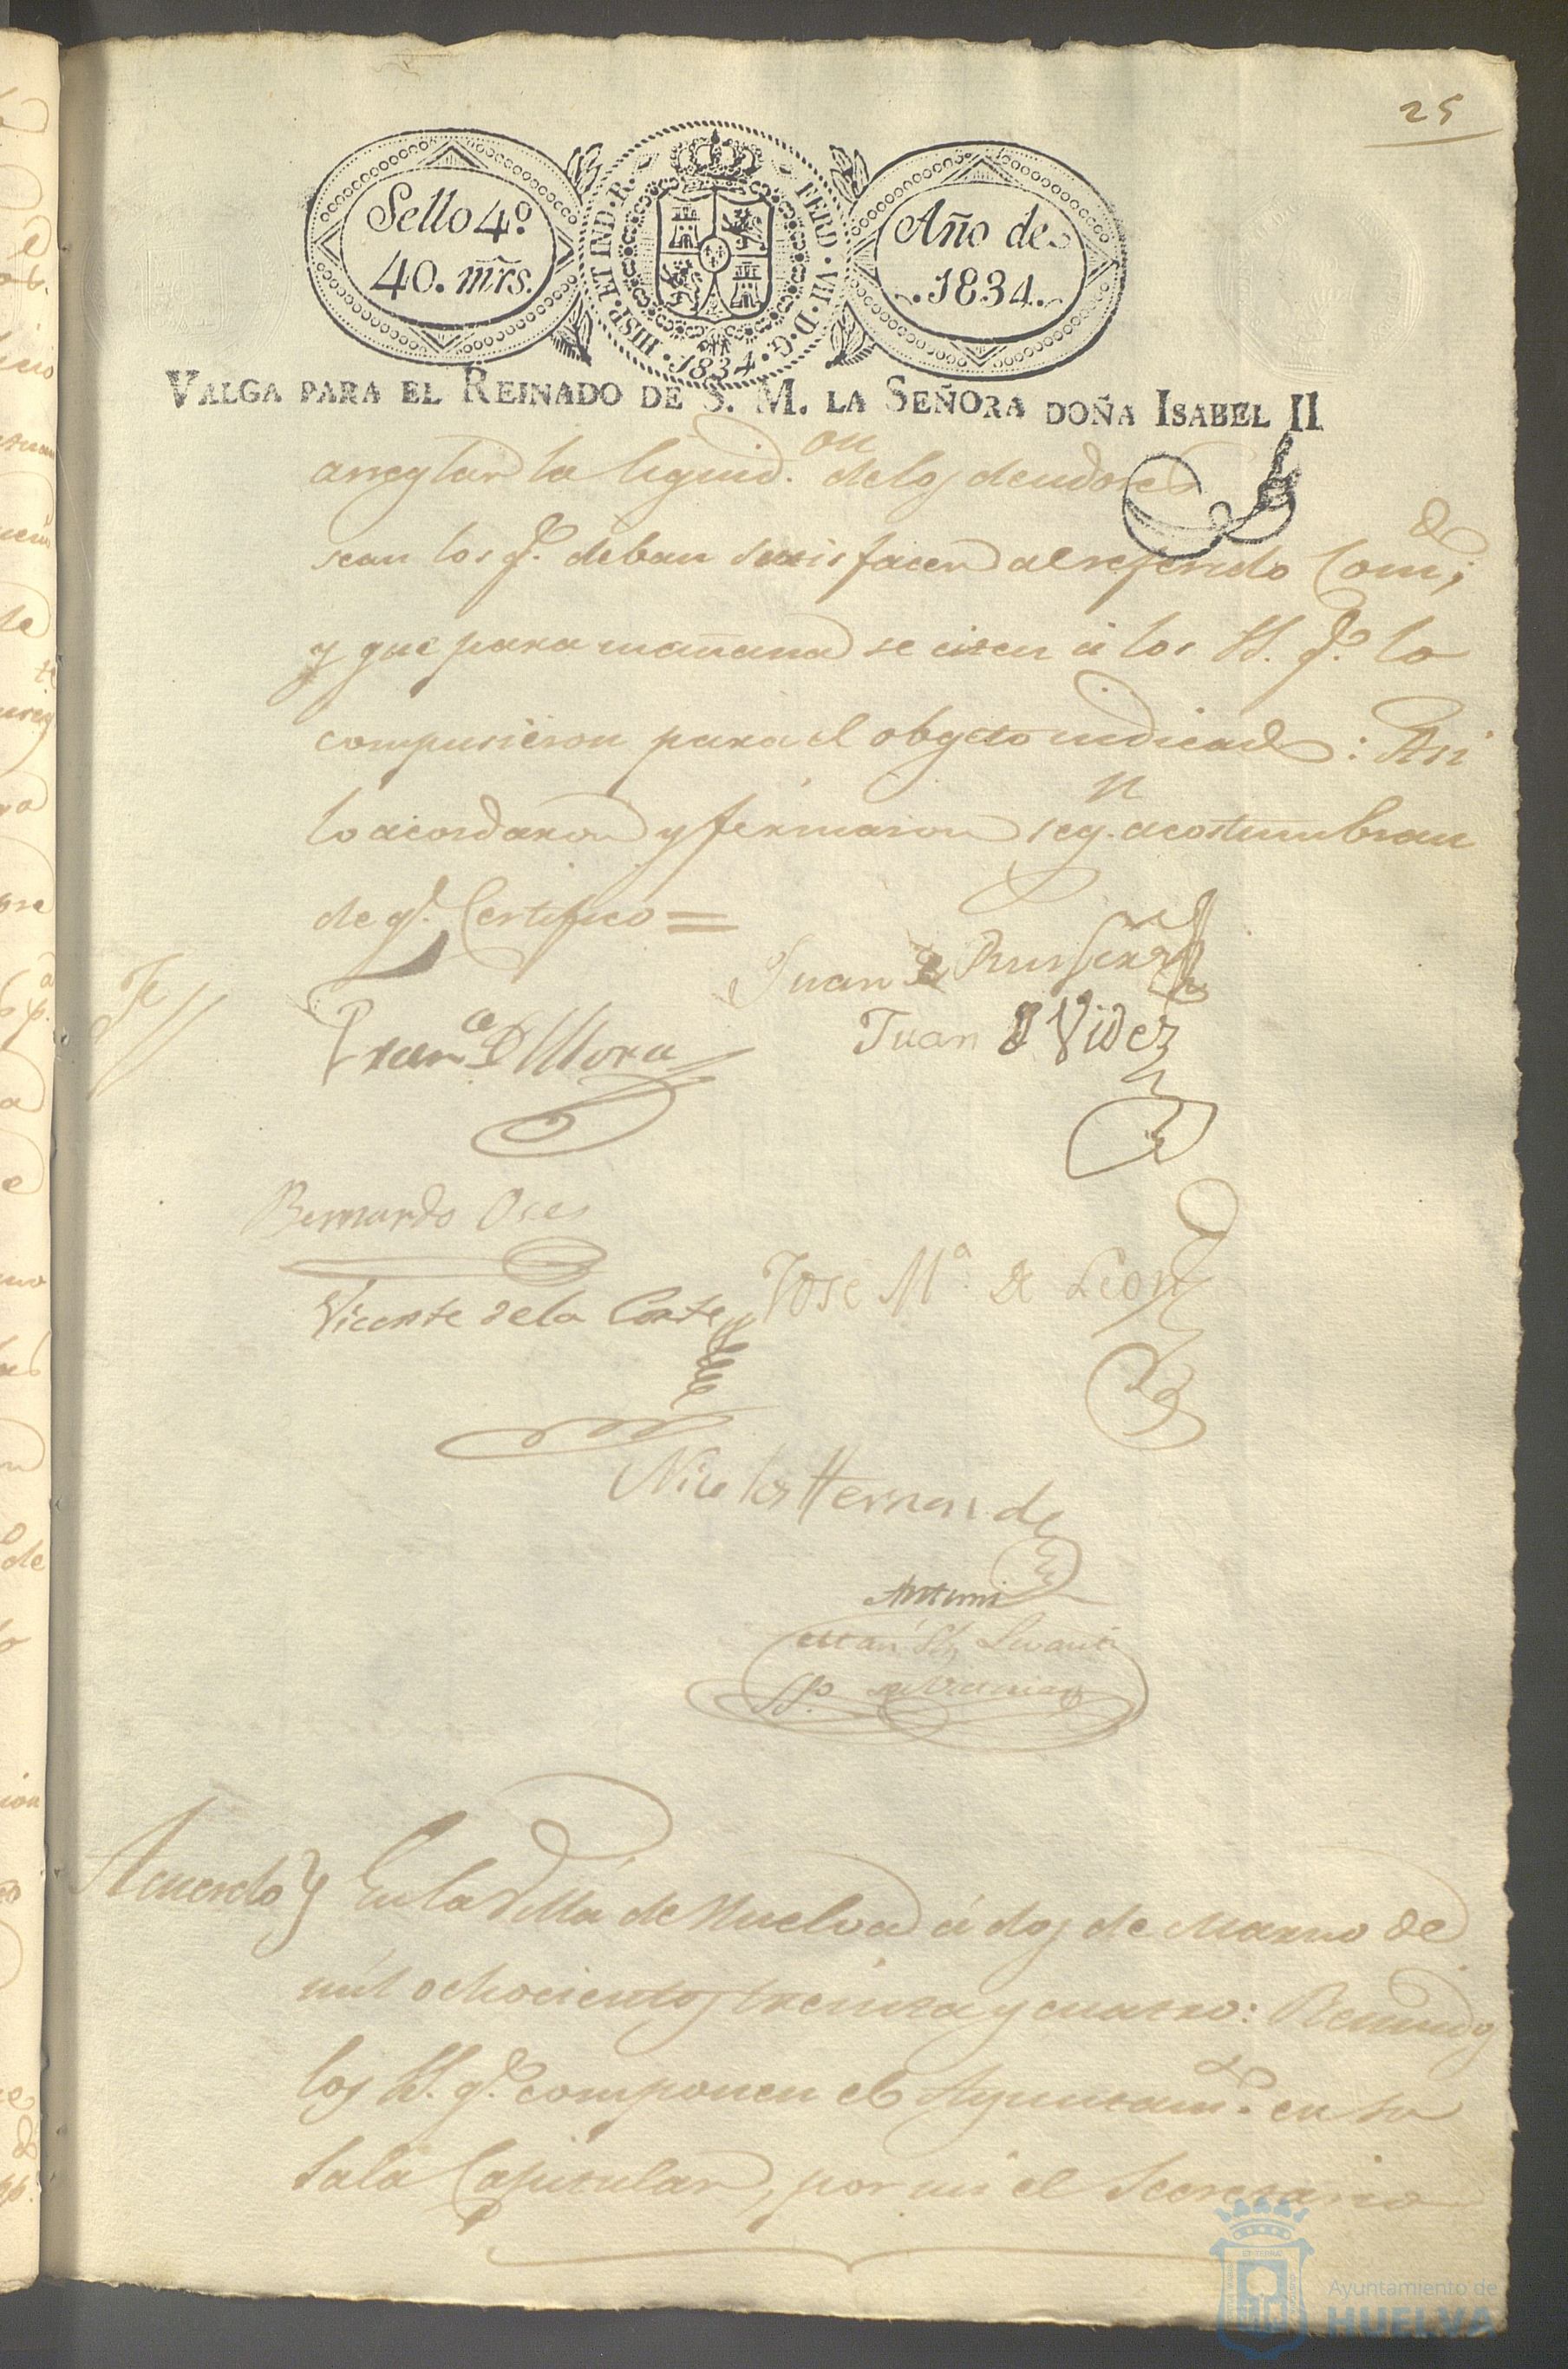 25
Sello 4º.
40. mrs.
HISP. ET IND. R.
FERD. VII. D. G.
1834.
Año de
1834.
VALGA PARA EL REINADO DE S. M. LA SEÑORA DOÑA ISABEL II
arreglar la liquid.on de los deudores
sean los q.e deban satisfacer al referido Com.do;
y que para mañana se citen á los SS. q.e lo
compusieron para el obgeto indicado: Asi
lo acordaron y firmaron seg.n acostumbran
de q.e Certifico =
Juan
Fran.co de Mora
Juan de Vides
Bernardo Oses
José M.a de Leon
Vicente de la Corte
Nicolas Hernandez
Antemi
Ss.o
Acuerdo} En la Villa de Huelva á dos de Marzo de
mil ochocientos treinta y cuatro: Reunidos
los SS. q.e componen el Ayuntam.to en su
Sala Capitular, por mi el Secretario
Ayuntamiento de
HUELVA